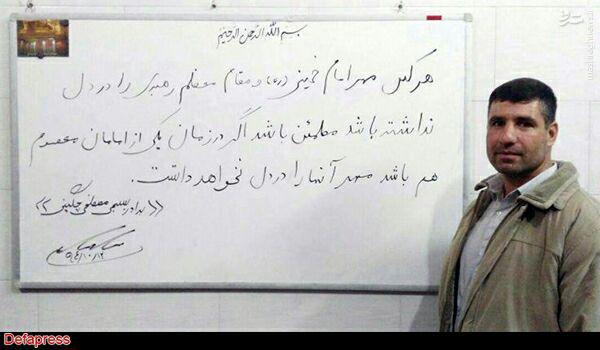 بسم الله الرحمن الرحیم
هر کس مهر امام خمینی (ره) و مقام معظم رهبری را در دل
نداشته باشد مطمئن باشد اگر در زمان یکی از امامان معصوم
هم باشد مهر آنها را در دل نخواهد داشت.
مصطفی چگینی
Defapress